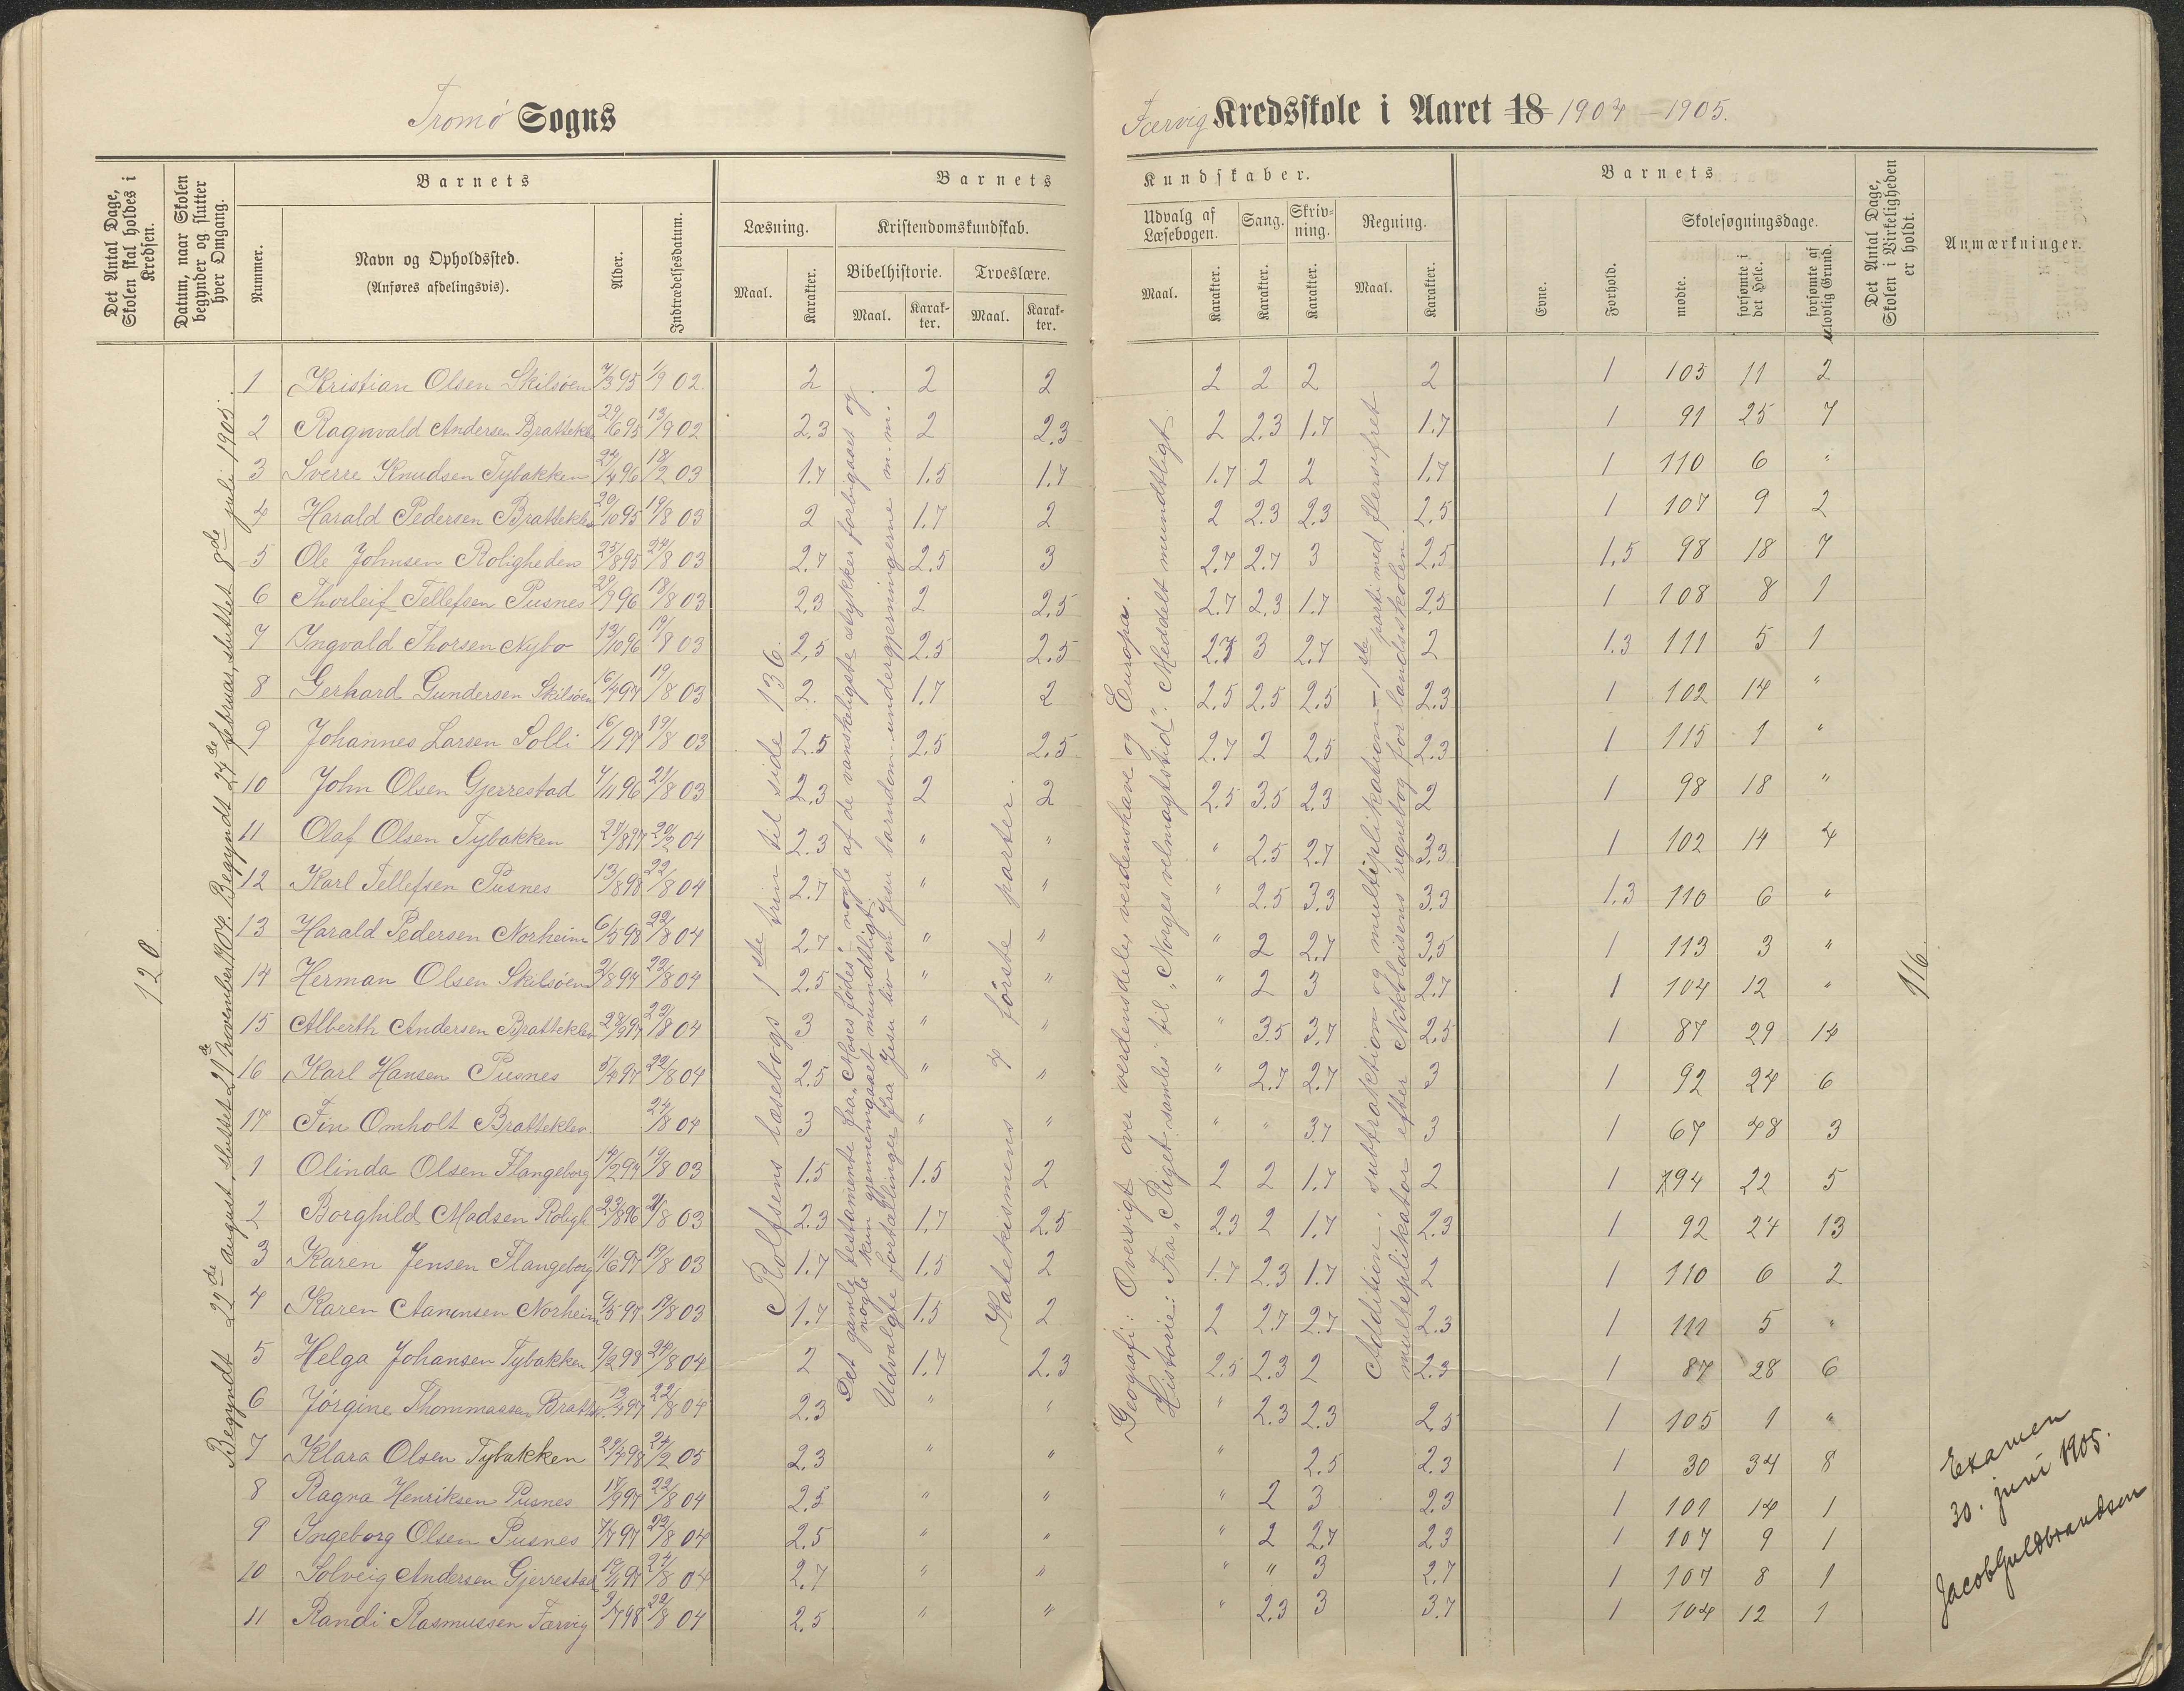 Tromø Sogns
Færvig Kredsskole i Aaret 18 1904 – 1905.
Det Antal Dage, Skolen skal holdes i Kredsen.
Datum, naar Skolen begynder og slutter hver Omgang.
Barnets
Nummer.
Navn og Opholdssted.
(Anføres afdelingsvis).
Alder.
Indtrædelsesdatum.
Barnets
Læsning.
Maal.
Karakter.
Kristendomskundskab.
Bibelhistorie.
Maal.
Karakter.
Troeslære.
Maal.
Karakter.
Kundskaber.
Udvalg af Læsebogen.
Maal.
Karakter.
Sang.
Karakter.
Skrivning.
Karakter.
Regning.
Maal.
Karakter.
Barnets
Evne.
Forhold.
Skolesøgningsdage.
mødte.
forsømte i det Hele.
forsømte af ulovlig Grund.
Det Antal Dage, Skolen i Virkeligheden er holdt.
Anmærkninger.
120
Begyndt 22de august, sluttet 21de november 1904. Begyndt 27de februar, sluttet 8de juli 1905.
Rolfsens læsebogs 1ste trin til side 136.
Det gamle testamente fra „Moses fødes"; nogle af de vanskeligste stykker forbigaaet og
nogle kun gjennemgaaet mundtligt.
Udvalgte fortællinger fra Jesu liv som Jesu barndom undergjerningerne m. m.
Katekismens 4 første parter.
Geografi: Oversigt over verdensdele, verdenshave og Europa.
Historie: Fra „Riget samles" til „Norges velmagtstid". Meddelt mundtligt.
Addition, subtraktion og multiplikation – 1ste parti med flersifret
multeplikator efter Nikolaisens regnebog for landsskolen.
1 Kristian Olsen Skilsøen 4/3 95 1/9 02. 2 2 2 2 2 2 2 1 103 11 2
2 Ragnvald Andersen Bratteklev 29/6 95 13/9 02 2.3 2 2.3 2 2.3 1.7 1.7 1 91 25 7
3 Sverre Knudsen Tybakken 24/4 96 18/2 03 1.7 1.5 1.7 1.7 2 2 1.7 1 110 6 "
4 Harald Pedersen Bratteklev 20/10 95 19/8 03 2 1.7 2 2 2.3 2.3 2.5 1 107 9 2
5 Ole Johnsen Roligheden 25/8 95 24/8 03 2.7 2.5 3 2.7 2.7 3 2.5 1.5 98 18 7
6 Thorleif Tellefsen Pusnes 29/9 96 18/8 03 2.3 2 2.5 2.7 2.3 1.7 2.5 1 108 8 1
7 Ingvald Thorsen Nybo 13/10 96 19/8 03 2,5 2.5 2.5 2.7 3 2.7 2 1.3 111 5 1
8 Gerhard Gundersen Skilsøen 16/4 97 19/8 03 2. 1.7 2 2.5 2.5 2.5 2.3 1 102 14 "
9 Johannes Larsen Solli 16/1 97 19/8 03 2.5 2.5 2.5 2.7 2 2.5 2.3 1 115 1 "
10 John Olsen Gjerrestad 4/11 96 21/8 03 2.3 2 2 2.5 3.5 2.3 2 1 98 18 "
11 Olaf Olsen Tybakken 21/8 97 29/2 04 2.3 " " " 2.5 2.7 3.3 1 102 14 4
12 Karl Tellefsen Pusnes 13/8 98 22/8 04 2.7 " " " 2.5 3.3 3.3 1.3 110 6 "
13 Harald Pedersen Norheim 6/5 98 22/8 04 2.7 " " " 2 2.7 3.5 1 113 3 "
14 Herman Olsen Skilsøen 2/8 97 22/8 04 2.5 " " " 2 3 2.7 1 104 12 "
15 Alberth Andersen Bratteklev 28/9 97 23/8 04 3 " " " 3.5 3.7 2.5 1 87 29 14
16 Karl Hansen Pusnes 5/4 97 22/8 04 2.5 " " " 2.7 2.7 3 1 92 24 6
17 Fin Omholt Bratteklev. 24/8 04 3 " " " " 3.7 3 1 67 48 3
1 Olinda Olsen Flangeborg 14/2 97 19/8 03 1.5 1.5 2 2 2 1.7 2 1 94 22 5
2 Borghild Madsen Roligh. 23/8 96 21/8 03 2.3 1.7 2.5 2.3 2 1.7 2.3 1 92 24 13
3 Karen Jensen Flangeborg 11/6 97 19/8 03 1.7 1.5 2 1.7 2.3 1.7 2 1 110 6 2
4 Karen Aanensen Norheim 4/5 97 19/8 03 1.7 1.5 2 2 2.7 2.7 2.3 1 111 5 "
5 Helga Johansen Tybakken 9/2 98 24/8 04 2 1.7 2.3 2.5 2.3 2 2.3 1 87 28 6
6 Jørgine Thommassen Brattek. 13/4 97 22/8 04 2.3 " " " 2.3 2.3 2.5 1 105 1 "
7 Klara Olsen Tybakken 29/4 98 24/2 05 2.3 " " " 2.5 2.3 1 30 34 8
8 Ragna Henriksen Pusnes 17/4 97 22/8 04 2.5 " " " 2 3 2.3 1 101 14 1
9 Ingeborg Olsen Pusnes 7/7 97 22/8 04 2.5 " " " 2 2.7 2.3 1 107 9 1
10 Solveig Andersen Gjerrestad 19/11 97 24/8 04 2.7 " " " " 3 2.7 1 107 8 1
11 Randi Rasmussen Færvig 9/7 98 22/8 04 2.5 " " " 2.3 3 3.7 1 104 12 1
116.
Examen
30. juni 1905.
Jacob Guldbrandsen